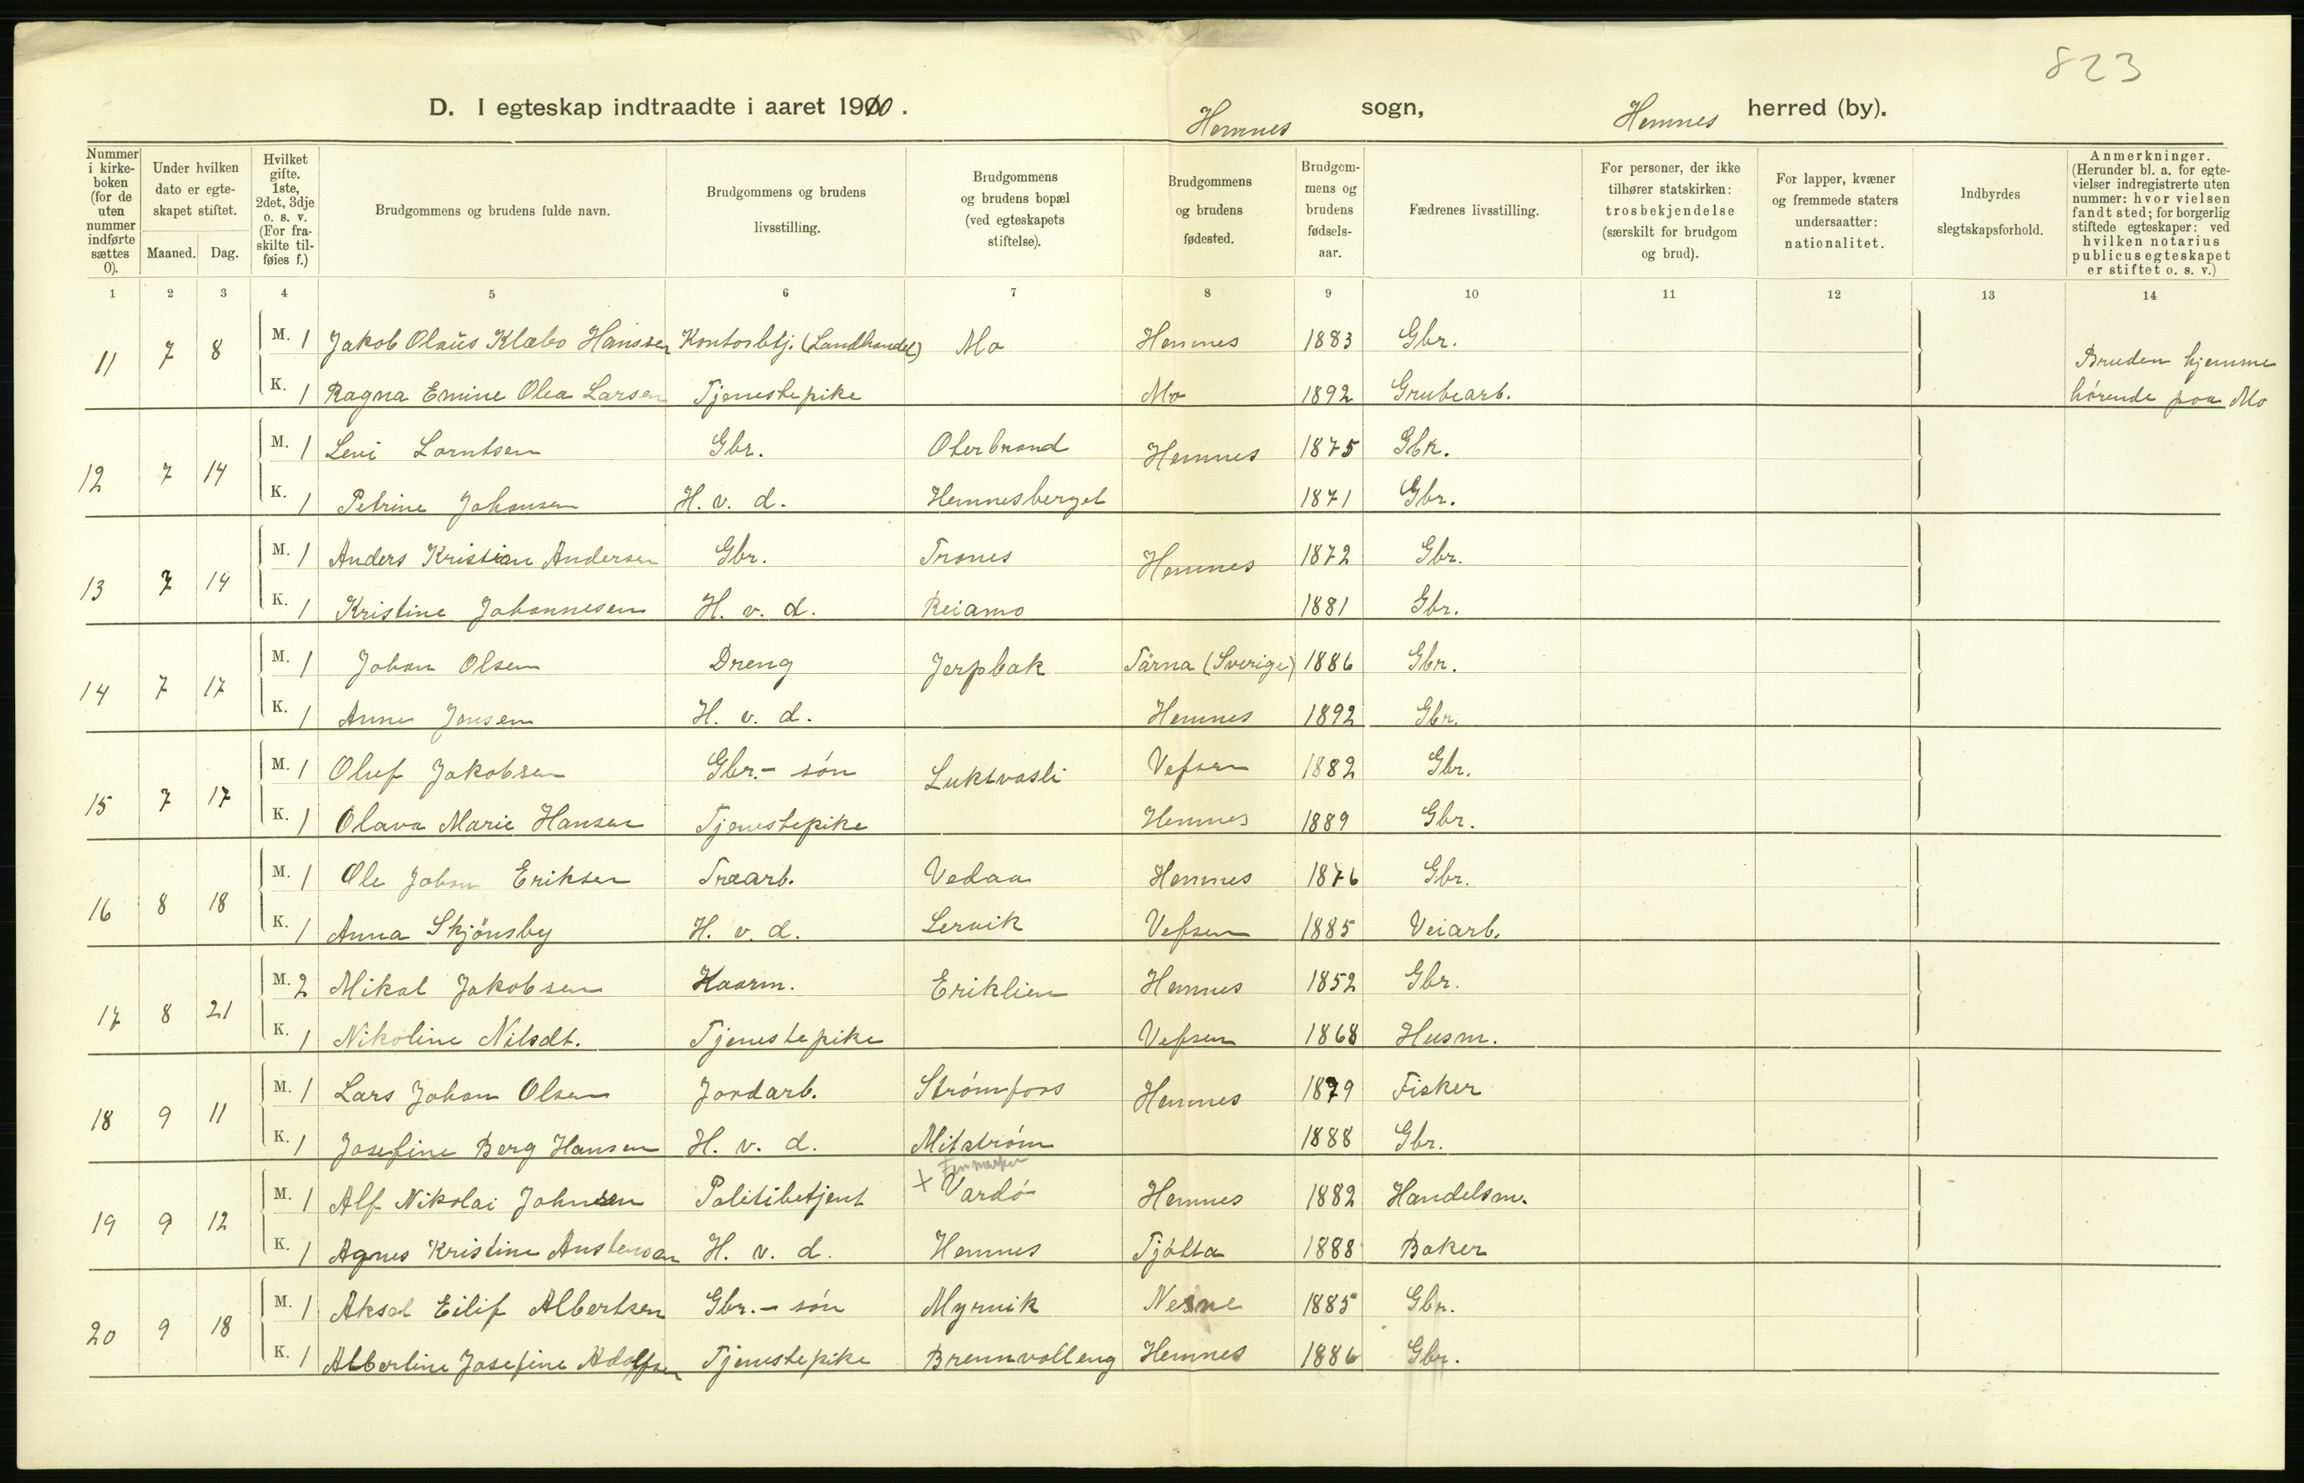 823
D. I egteskap indtraadte i aaret 1910. Hemnes sogn, Hemnes herred (by).
Nummer i kirkeboken (for de uten nummer indførte sættes 0).
Under hvilken dato er egteskapet stiftet.
Maaned. Dag.
Hvilket gifte. 1ste, 2det, 3dje o. s. v. (For fraskilte tilføies f.)
Brudgommens og brudens fulde navn.
Brudgommens og brudens livsstilling.
Brudgommens og brudens bopæl (ved egteskapets stiftelse).
Brudgommens og brudens fødested.
Brudgommens og brudens fødselsaar.
Fædrenes livsstilling.
For personer, der ikke tilhører statskirken: trosbekjendelse (særskilt for brudgom og brud).
For lapper, kvæner og fremmede staters undersaatter: nationalitet.
Indbyrdes slegtskapsforhold.
Anmerkninger. (Herunder bl. a. for egtevielser indregistrerte uten nummer: hvor vielsen fandt sted; for borgerlig stiftede egteskaper: ved hvilken notarius publicus egteskapet er stiftet o. s. v.)
1 2 3 4 5 6 7 8 9 10 11 12 13 14
11 7 8 M. 1 Jakob Olaus Klæbo Hanssen Kontorbetj. (Landhandel) Mo Hemnes 1883 Gbr.
K. 1 Ragna Emine Olea Larsen Tjenestepike Mo 1892 Grubearb. Bruden hjemmehørende paa Mo
12 7 14 M. 1 Levi Lorntsen Gbr. Oterbrand Hemnes 1875 Gbr.
K. 1 Petrine Johansen H. v. d. Hemnesberget 1871 Gbr.
13 7 14 M. 1 Anders Kristian Andersen Gbr. Trones Hemnes 1872 Gbr.
K. 1 Kristine Johannesen H. v. d. Reiamo 1881 Gbr.
14 7 17 M. 1 Johan Olsen Dreng Jerpbak Tärna (Sverige) 1886 Gbr.
K. 1 Anne Jonsen H. v. d. Hemnes 1892 Gbr.
15 7 17 M. 1 Oluf Jakobsen Gbr.- søn Luktvasli Vefsen 1882 Gbr.
K. 1 Olava Marie Hansen Tjenestepike Hemnes 1889 Gbr.
16 8 18 M. 1 Ole Johan Eriksen Træarb. Vedaa Hemnes 1876 Gbr.
K. 1 Anna Skjönsby H. v. d. Lervik Vefsen 1885 Veiarb.
17 8 21 M. 2 Mikal Jakobsen Kaarm. Eriklien Hemnes 1852 Gbr.
K. 1 Nikoline Nilsdt. Tjenestepike Vefsen 1868 Husm.
18 9 11 M. 1 Lars Johan Olsen Jordarb. Strømfors Hemnes 1879 Fisker
K. 1 Josefine Berg Hansen H. v. d. Mitstrøm 1888 Gbr.
19 9 12 M. 1 Alf Nikolai Johnsen Politibetjent × Finmarken Vardö Hemnes 1882 Handelsm.
K. 1 Agnes Kristine Austensen H. v. d. Hemnes Tjötta 1888 Baker
20 9 18 M. 1 Aksel Eilif Albertsen Gbr.- søn Myrvik Nesne 1885 Gbr.
K. 1 Albertine Josefine Adolfsen Tjenestepike Brennvolleng Hemnes 1886 Gbr.